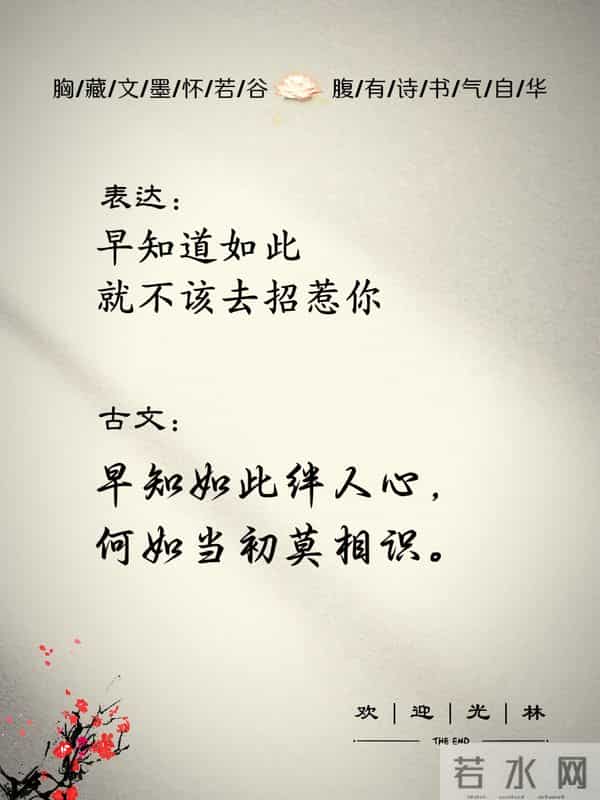 胸/藏/文/墨/怀/若/谷 腹/有/诗/书/气/自/华
表达：
早知道如此
就不该去招惹你
古文：
早知如此绊人心，
何如当初莫相识。
欢｜迎｜光｜林
THE END
若水网